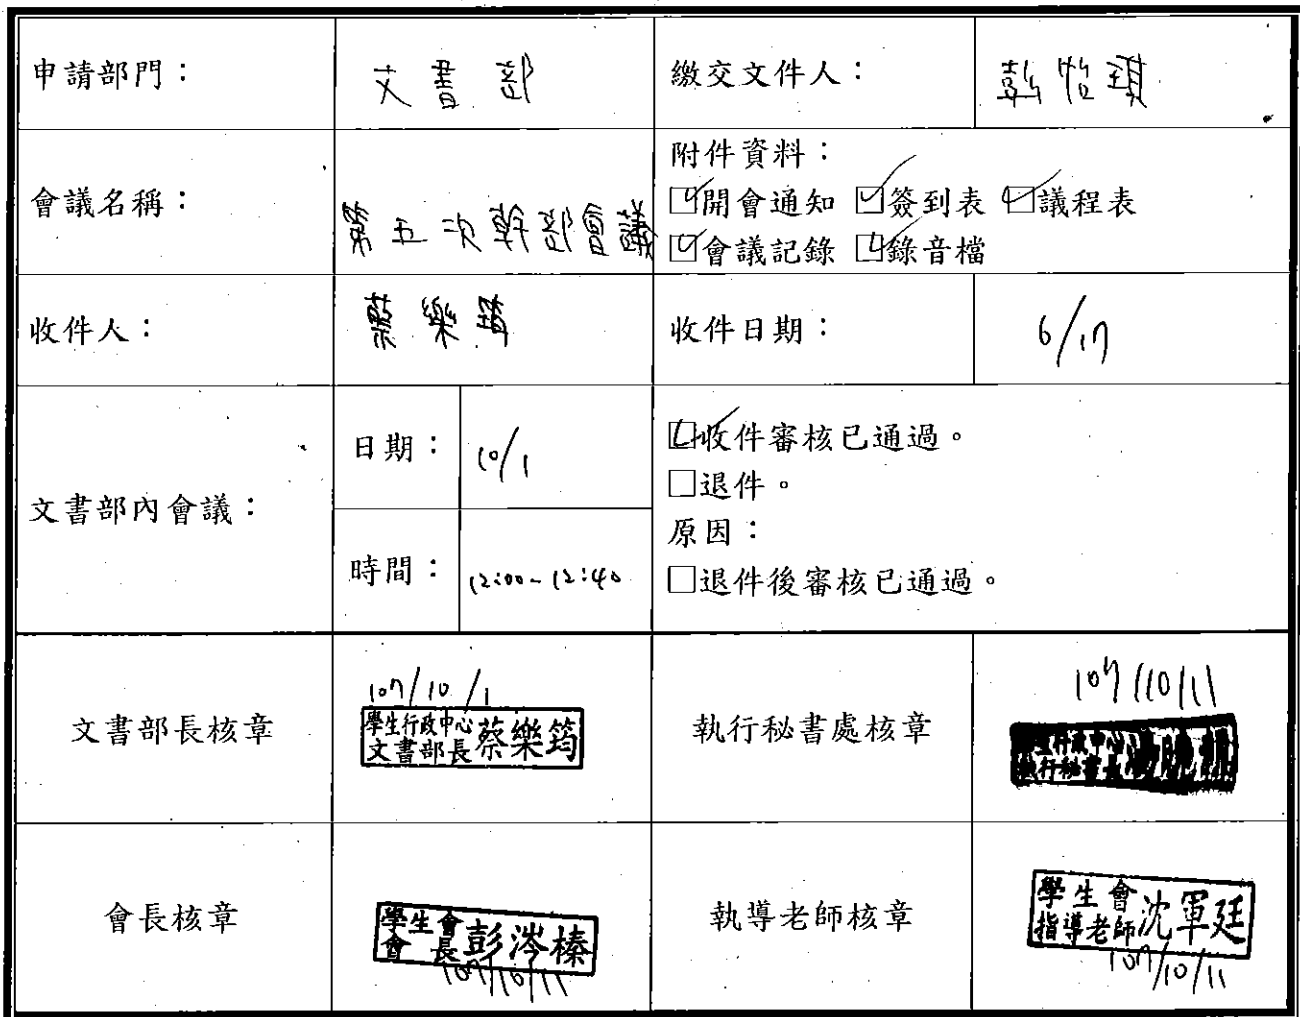 申請部門：
文書部
繳交文件人：
怡
會議名稱：
第五次幹部會議
附件資料：
開會通知 簽到表 議程表
會議記錄 錄音檔
收件人：
蔡樂筠
收件日期：
6/17
文書部內會議：
日期：
10/1
時間：
12:00~12:40
收件審核已通過。
退件。
原因：
退件後審核已通過。
文書部長核章
107/10/1
學生行政中心
文書部長
蔡樂筠
執行秘書處核章
107/10/11
學生行政中心
執行秘書長
會長核章
學生會
會長
彭涔榛
107/10/11
執導老師核章
學生會
指導老師
沈軍廷
107/10/11